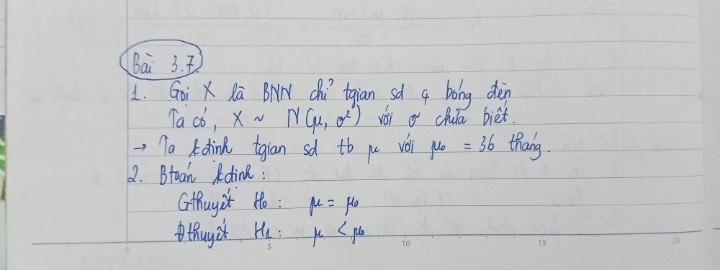 Bài 3.7.
1. Gọi X là BNN chỉ tgian sd q bóng đèn
Ta có, X ~ N(μ, σ²) với σ chưa biết.
→ Ta kđịnh tgian sd tb μ với μ₀ = 36 tháng.
2. Btoán kđịnh:
Gthuyết H₀: μ = μ₀
Đthuyết H₁: μ < μ₀
0 5 10 15 20